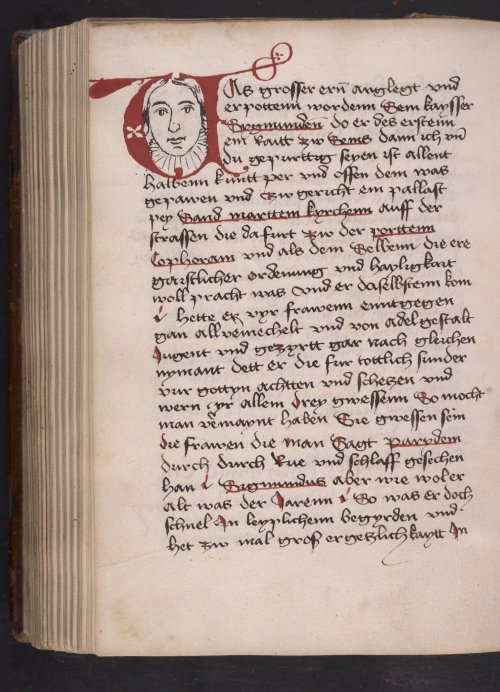 Was grosser ern̄ anglegt vnd
erpottenn wordenn Sem kaysser
Sygmunden̄ do er des erstenn
ein Raitt zw Rems dann ich vn̄
du gepurttig seyen ist allent
halbenn kuntt per vnd offen dem was
gepawen vnd zw gericht ein pallast
pey Sand marttem kyrchenn auff der
strassen die da furt zw der porttenn
Cophoram vnd als dem Selbenn die ere
gaistlicher ordenung vnd hayligkait
woll pracht was vnd er daselbstenn kom
i hette etz vyr frawenn enntgegen
gan all vernechelt vnd von adel gestalt
Jugent vnd gezyrtt gar nach gleichen
nymant dett er die fur tottlich sunder
vur gottyn achtten vnd schetzen vnd
wern yr allem drey gwessenn So mocht
man vermaynt haben Sie gwessen sein
die frawen die man Sagt parydem
durch durch Rue vnd schlaff gesechen
han i Sigmundus aber wie wol er
alt was der Jarenn i So was er doch
schnel Jn leyplichenn begyrden vnd
het zw mal gros ergetzlichkaytt Jn